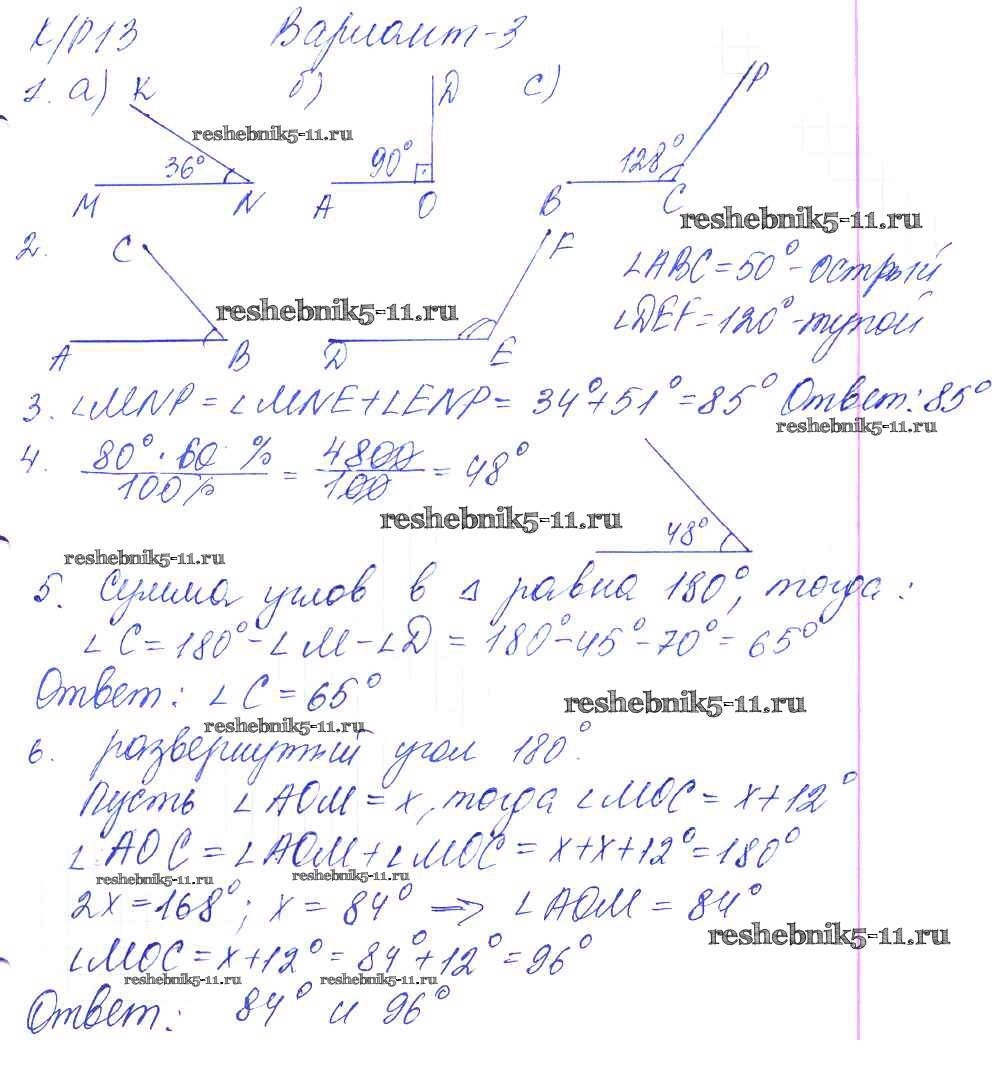 К/Р13 Вариант-3
1. а) K б) D с) P
reshebnik5-11.ru
36° 90° 128°
M N A O B C
reshebnik5-11.ru
2. C F
∠ABC = 50° - острый
reshebnik5-11.ru
∠DEF = 120° - тупой
A B D E
3. ∠MNP = ∠MNE + ∠ENP = 34° + 51° = 85° Ответ: 85°
reshebnik5-11.ru
4. 80° · 60 % / 100% = 4800 / 100 = 48°
reshebnik5-11.ru
48°
reshebnik5-11.ru
5. Сумма углов в ⊿ равна 180°, тогда:
∠C = 180° - ∠M - ∠D = 180° - 45° - 70° = 65°
Ответ: ∠C = 65°
reshebnik5-11.ru
reshebnik5-11.ru
6. развернутый угол 180°.
Пусть ∠AOM = x, тогда ∠MOC = x + 12°
∠AOC = ∠AOM + ∠MOC = x + x + 12° = 180°
reshebnik5-11.ru reshebnik5-11.ru
2x = 168°; x = 84° => ∠AOM = 84°
reshebnik5-11.ru
∠MOC = x + 12° = 84° + 12° = 96°
reshebnik5-11.ru reshebnik5-11.ru
Ответ: 84° и 96°